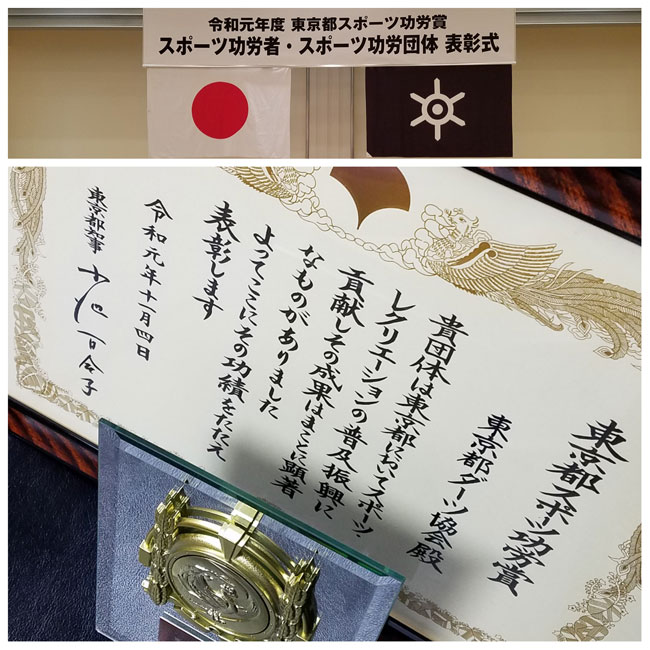 令和元年度 東京都スポーツ功労賞
スポーツ功労者・スポーツ功労団体 表彰式
東京都スポーツ功労賞
東京都ダーツ協会殿
貴団体は東京都においてスポーツ・
レクリエーションの普及振興に
貢献しその成果はまことに顕著
なものがありました
よってここにその功績をたたえ
表彰します
令和元年十一月四日
東京都知事 小池百合子